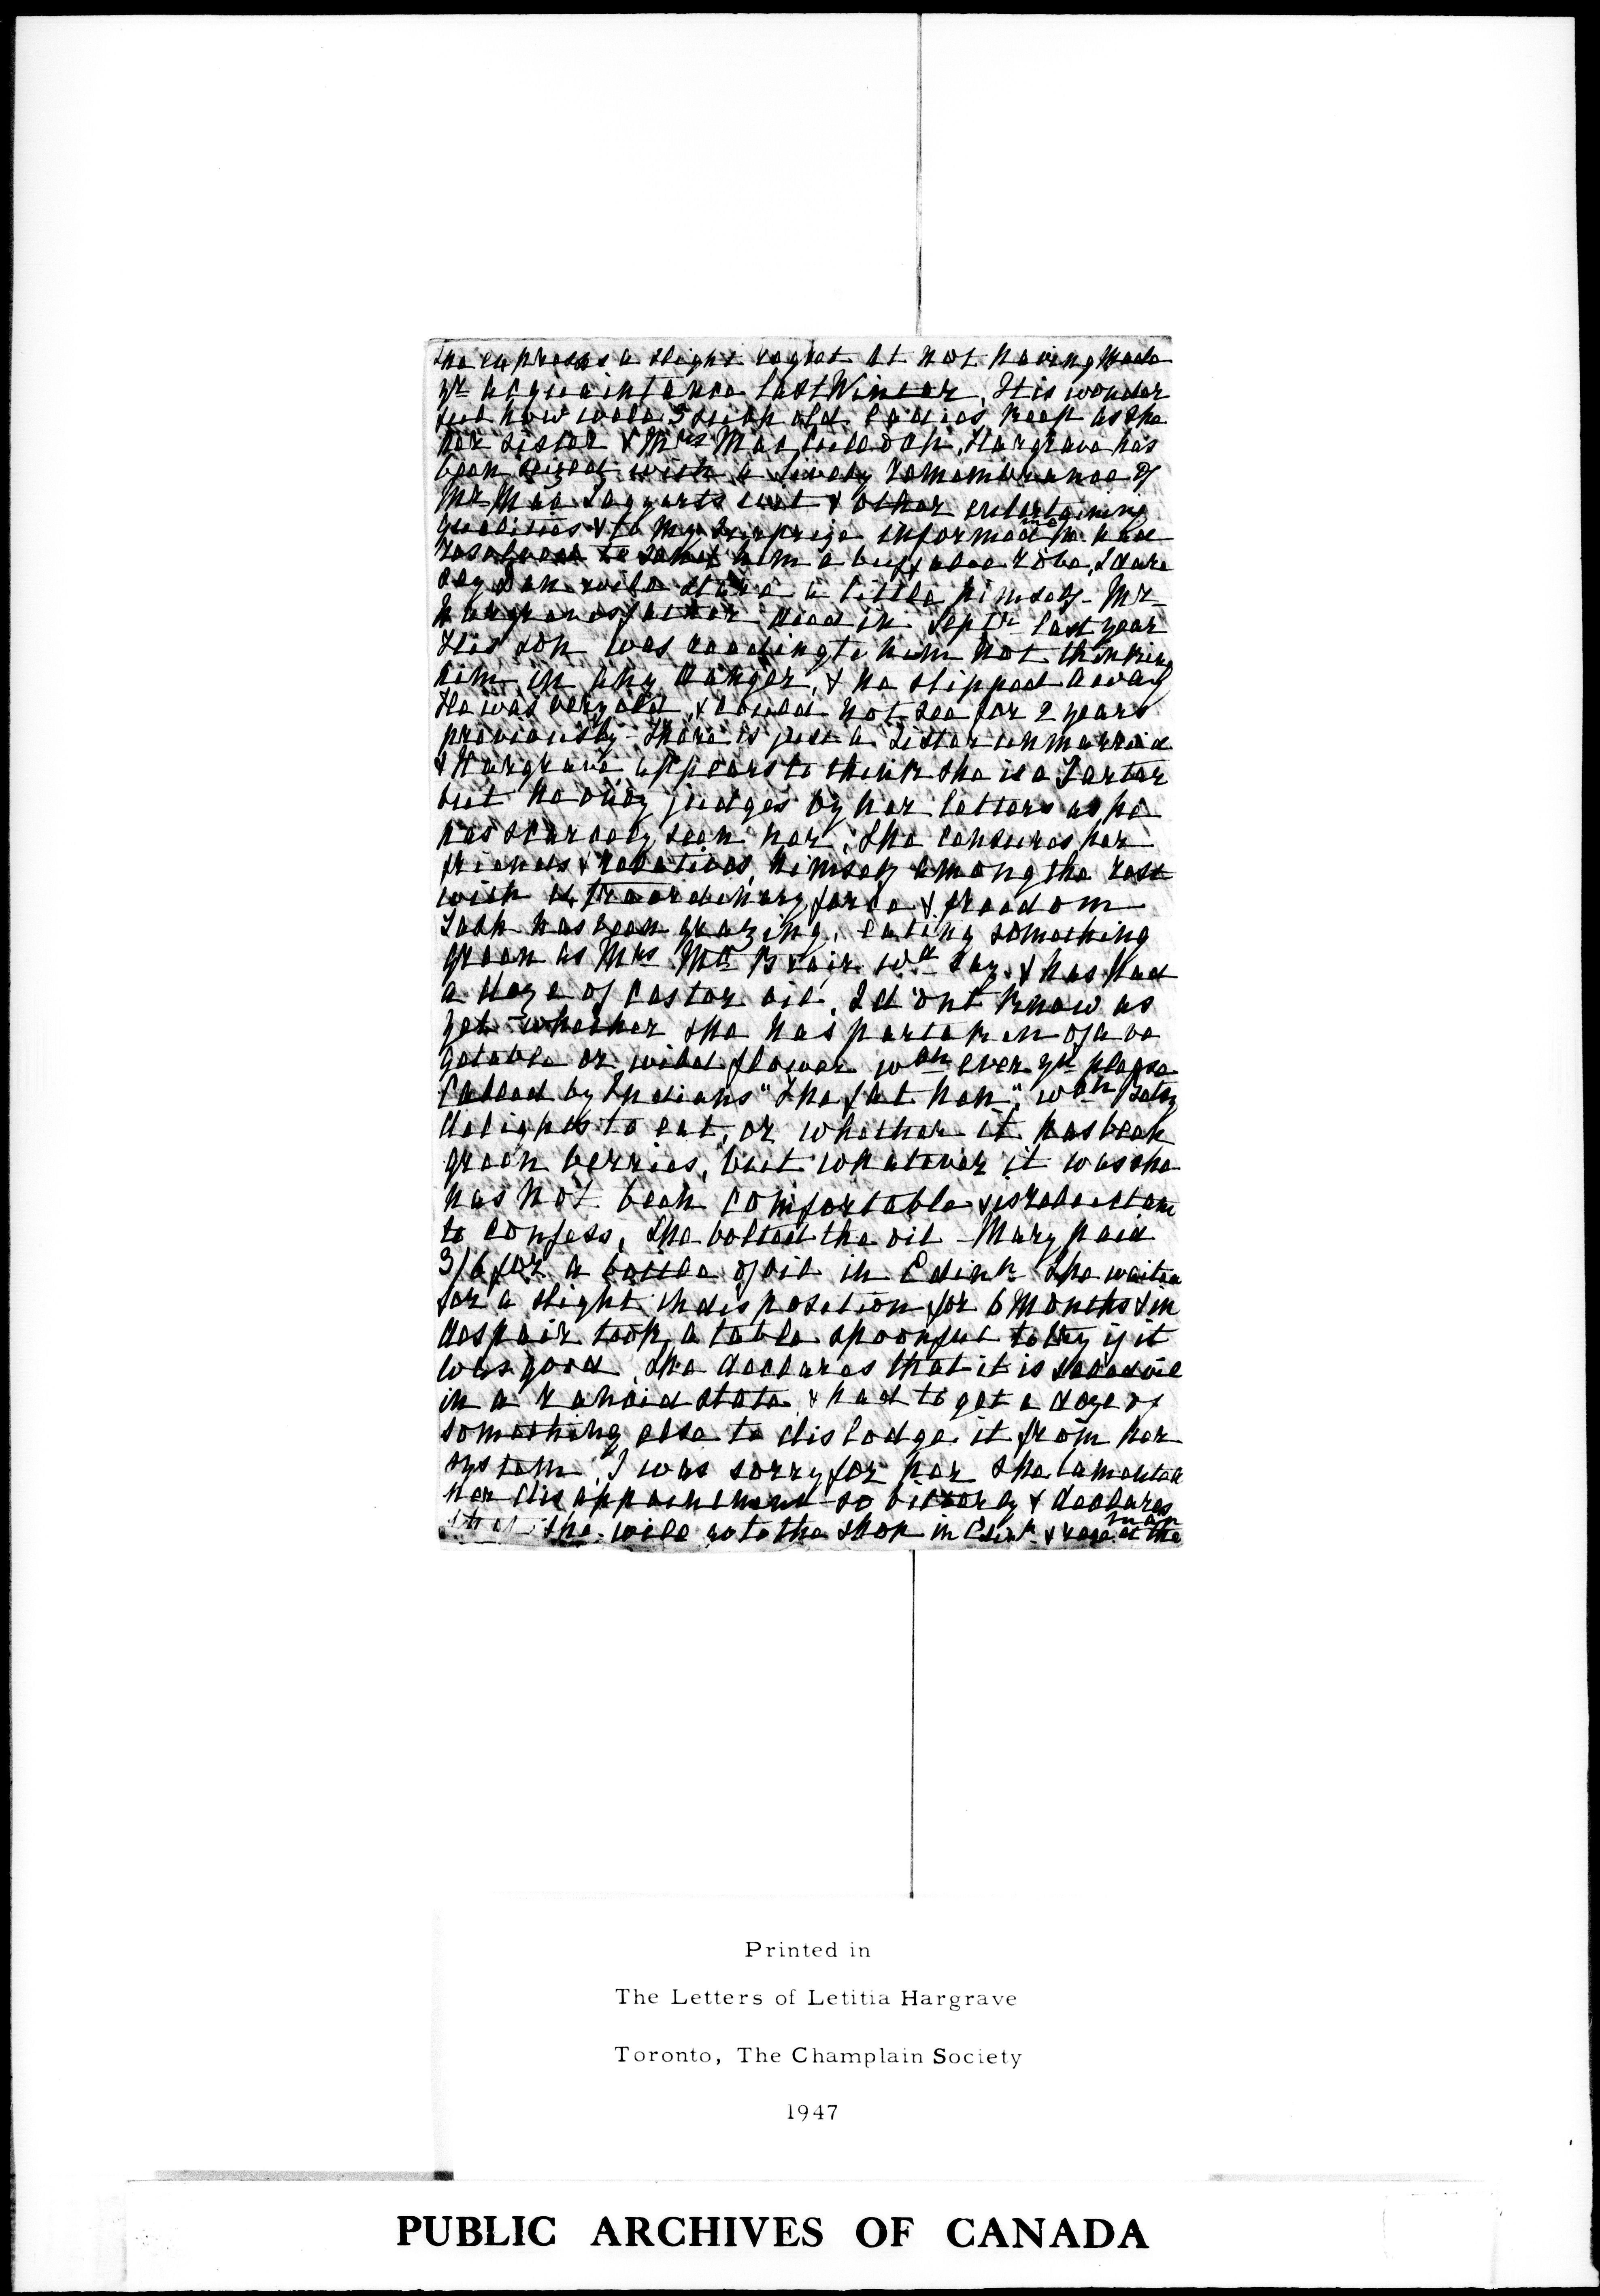 She expresses a slight regret at not having made
yr acquaintance last Winter. It is wonder
ful how well 3 such old ladies keep as she
her sister & Mrs MacCulloch. Hargrave has
been seized with a lively remembrance of
Mr MacTaggarts wit & other entertaining
qualities & to my surprise informed me he had
resolved to send him a buffaloe robe, I dare
say Dan will stare a little himself - Mr
Hargraves father died in Septr last year
His son was reading to him not thinking
him in any danger, & he slipped away
He was very old & could not see for 2 years
previously - There is just a sister unmarried
& Hargrave appears to think she is a Tartar
but he only judges by her letters as he
has scarcely seen her. She censures her
friends & relatives, himself among the rest
with extraordinary force & freedom
Tash has been grazing, eating something
green as Mrs McBrair wd say & has had
a doze of castor oil. I d'ont know as
yet whether she has partaken of a ve
getable or wild flower wch ever yu please
Called by Indians "The fat hen", wch Betsy
delights to eat, or whether it has been
green berries, but whatever it was she
has not been comfortable & is reluctant
to confess, She bolted the oil - Mary paid
3/6 for a bottle of oil in Edinr She waited
for a slight indisposition for 6 Months & in
despair took a table spoonful to try if it
was good. She declares that it is seed oil
in a rancid state & had to get a doze of
something else to dislodge it from her
system. I was sorry for her She lamented
her disappointment so bitterly & declares
that she will go to the shop in Edinr & rage at the
man
Printed in
The Letters of Letitia Hargrave
Toronto, The Champlain Society
1947
PUBLIC ARCHIVES OF CANADA